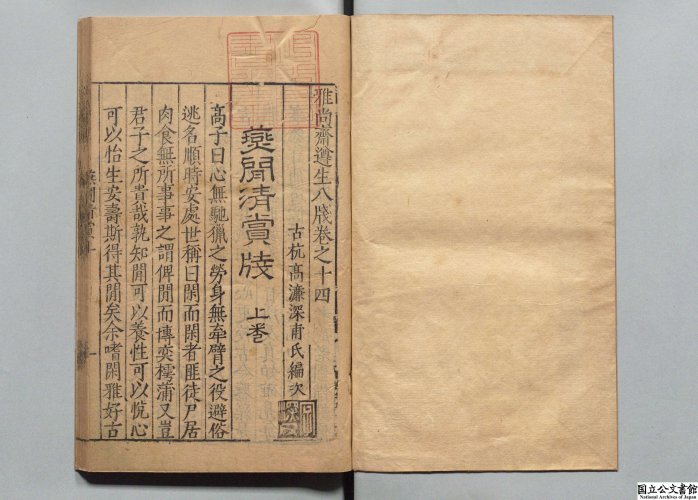 雅尚齋遵生八牋卷之十四
古杭高濂深甫氏編次
燕閒清賞牋 上卷
高子曰心無馳獵之勞身無牽臂之役避俗
逃名順時安處世稱曰閑而閑者匪徒尸居
肉食無所事事之謂俾閒而博奕樗蒲又豈
君子之所貴哉孰知閒可以養性可以悅心
可以怡生安壽斯得其閒矣余嗜閑雅好古
国立公文書館
National Archives of Japan